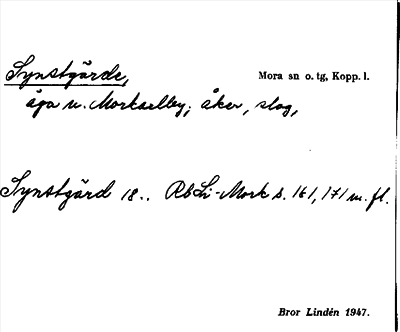 Synstgärde, Mora sn o. tg, Kopp. l.
äga u. Morkarlby; åker, slog,
Synstgärd 18.. RbLi-Mork s. 161, 171 m. fl.
Bror Lindén 1947.